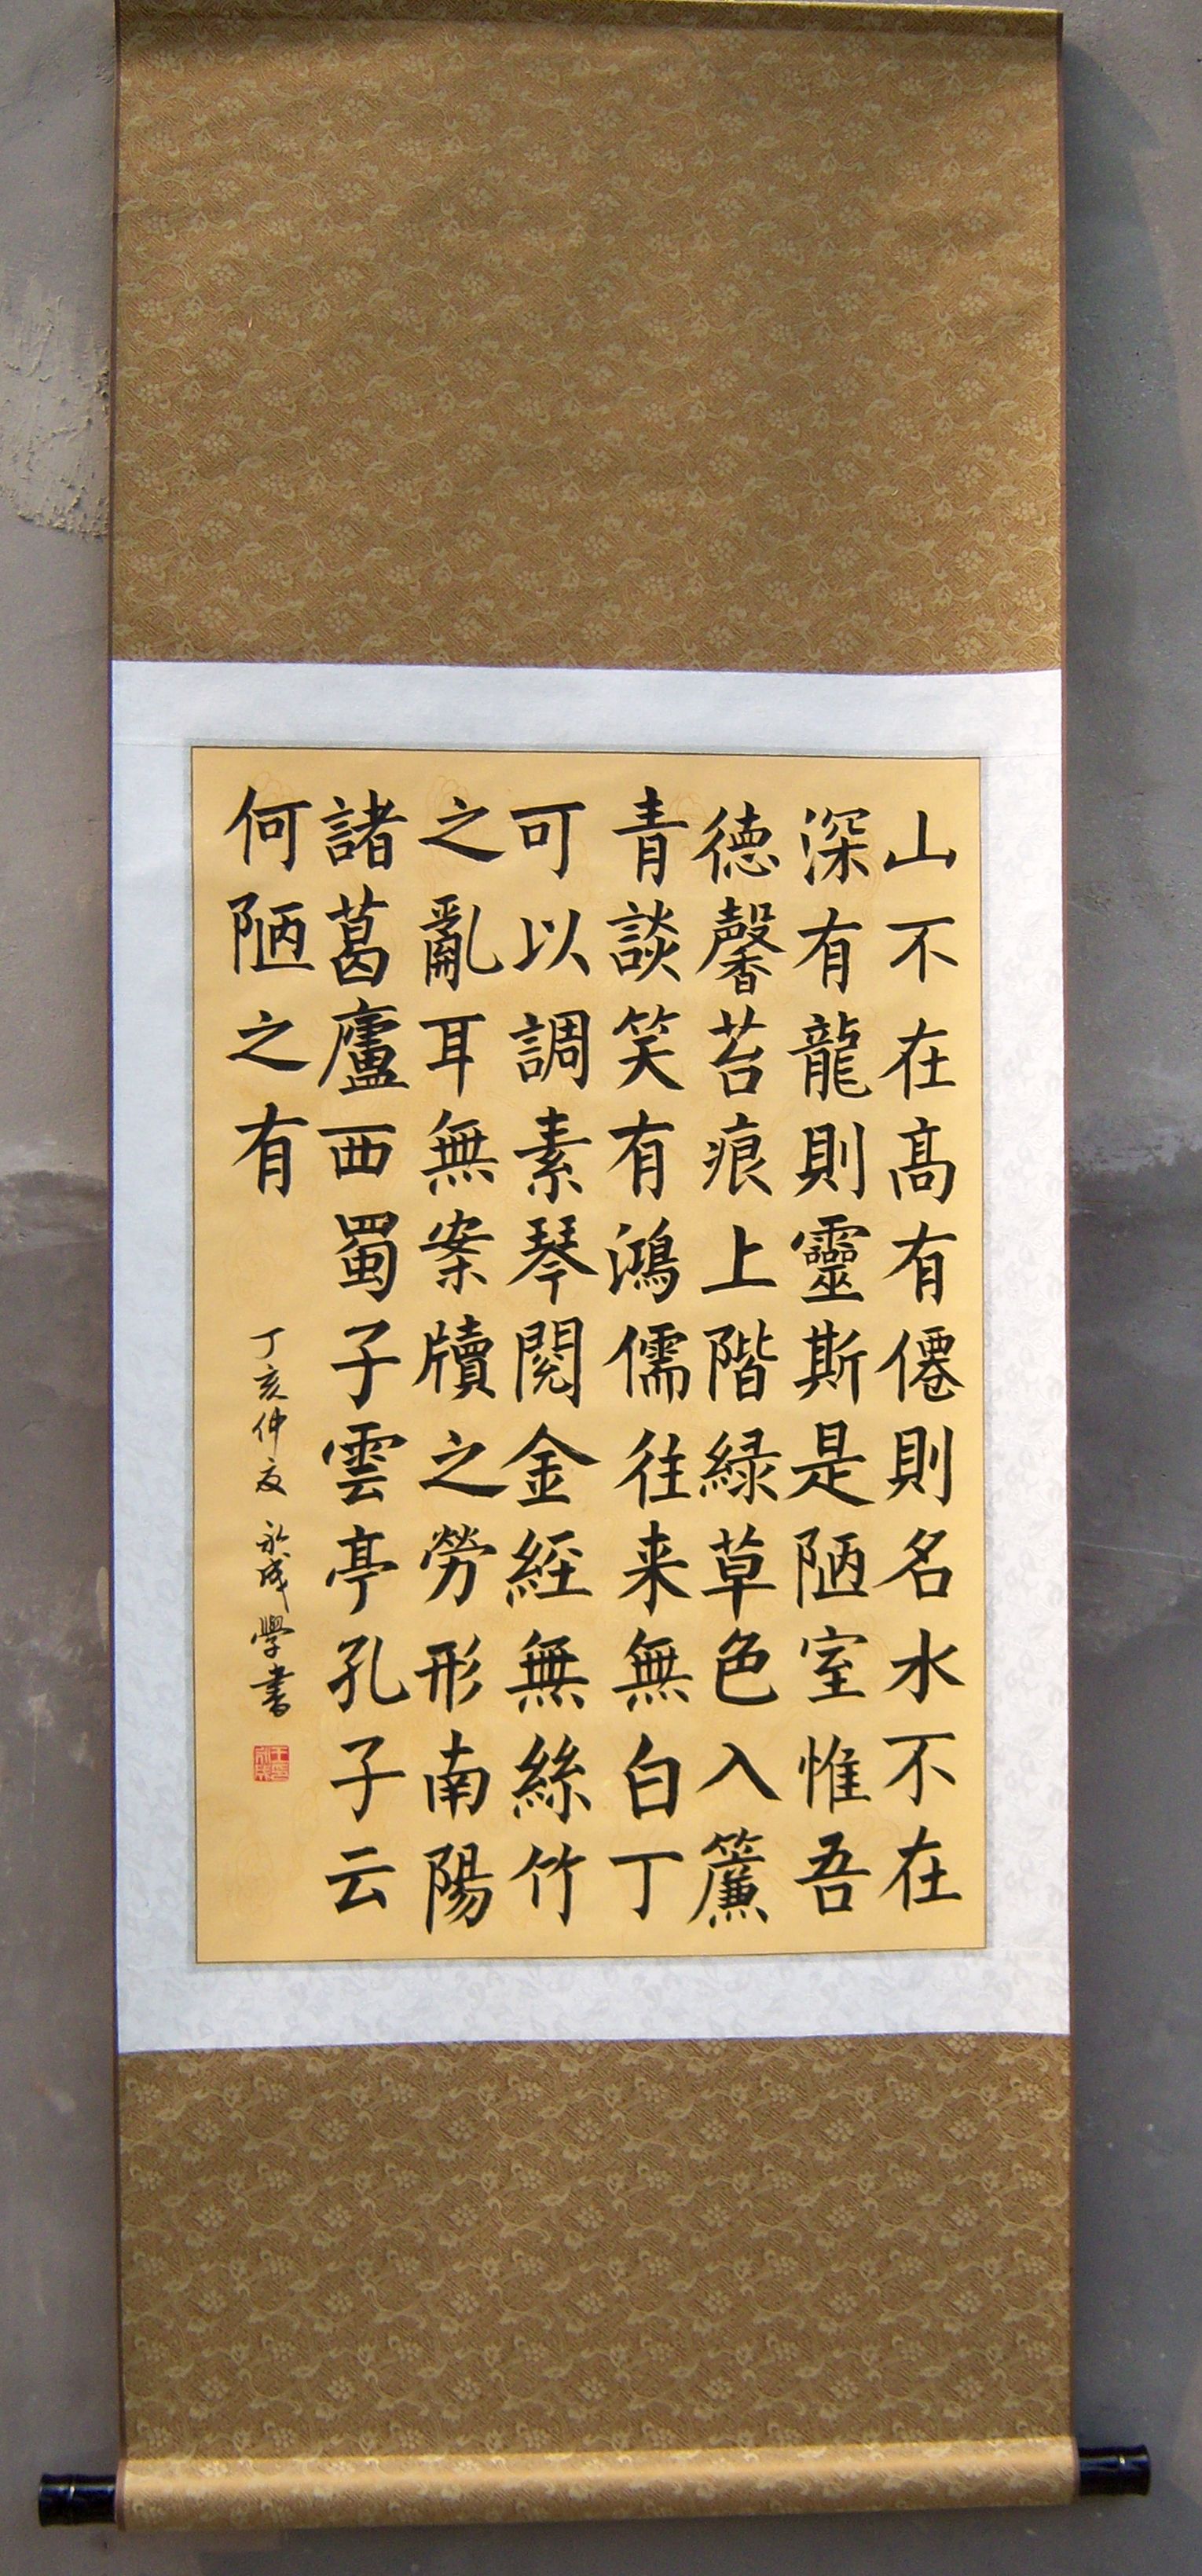 山不在高有僊則名水不在
深有龍則靈斯是陋室惟吾
德馨苔痕上階緑草色入簾
青談笑有鴻儒往来無白丁
可以調素琴閱金経無絲竹
之亂耳無案牘之勞形南陽
諸葛廬西蜀子雲亭孔子云
何陋之有
丁亥仲夏 永成學書